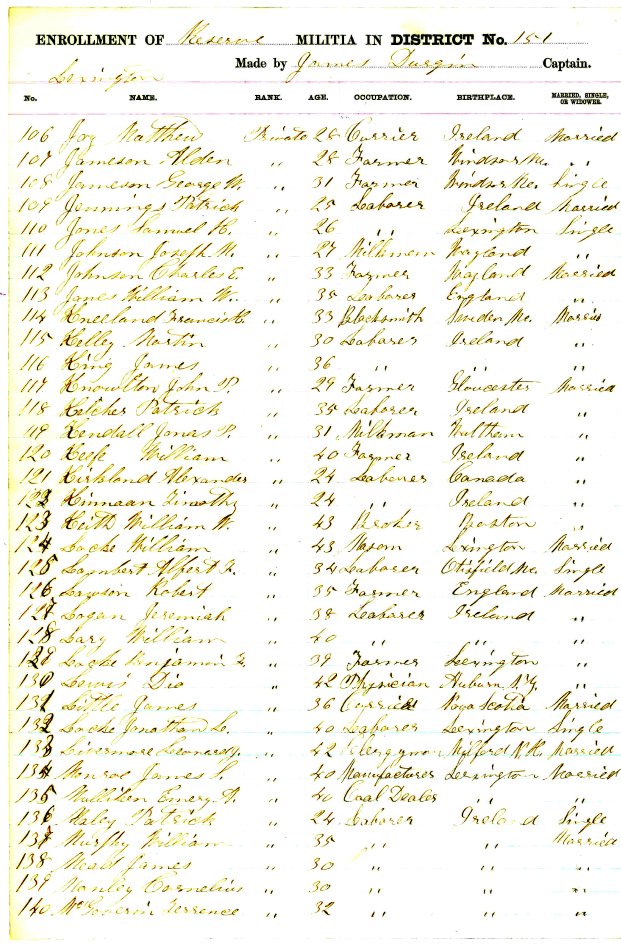 ENROLLMENT OF Reserve MILITIA IN DISTRICT No. 151
Lexington Made by James Durgin Captain.
No. NAME. RANK. AGE. OCCUPATION. BIRTHPLACE. MARRIED, SINGLE, OR WIDOWER.
106 Joy Matthew Private 28 Currier Ireland Married
107 Jameson Alden " 28 Farmer Windsor Me. "
108 Jameson George W. " 31 Farmer Windsor Me. Single
109 Jennings Patrick " 25 Laborer Ireland Married
110 Jones Samuel H. " 26 " Lexington Single
111 Johnson Joseph W. " 27 Milkman Wayland "
112 Johnson Charles E. " 33 Farmer Wayland Married
113 Jones William W. " 35 Laborer England "
114 Kneeland Francis H. " 33 Blacksmith Sweden Me. Married
115 Kelley Martin " 30 Laborer Ireland "
116 King James " 36 " " "
117 Knowlton John P. " 29 Farmer Gloucester Married
118 Kelcher Patrick " 35 Laborer Ireland "
119 Kendall Jonas P. " 31 Milkman Waltham "
120 Keefe William " 40 Farmer Ireland "
121 Kirkland Alexander " 24 Laborer Canada "
122 Kinnaan Timothy " 24 " Ireland "
123 Keith William W. " 43 Broker Boston "
124 Locke William " 43 Mason Lexington Married
125 Lambert Alfert F. " 34 Laborer Otisfield Me. Single
126 Lawson Robert " 35 Farmer England Married
127 Logan Jeremiah " 38 Laborer Ireland "
128 Lary William " 40 " " "
129 Locke Benjamin F. " 39 Farmer Lexington "
130 Lewis Dio " 42 Physician Auburn N.Y. "
131 Little James " 36 Currier Nova Scotia Married
132 Locke Jonathan L. " 40 Laborer Lexington Single
133 Livermore Leonard J. " 42 Clergyman Milford N.H. Married
134 Monroe James S. " 40 Manufacturer Lexington Married
135 Mulliken Emery A. " 40 Coal Dealer " "
136 Maley Patrick " 24 Laborer Ireland Single
137 Murphy William " 35 " " Married
138 Mead James " 30 " " "
139 Manley Cornelius " 30 " " "
140 McGovern Terrence " 32 " " "